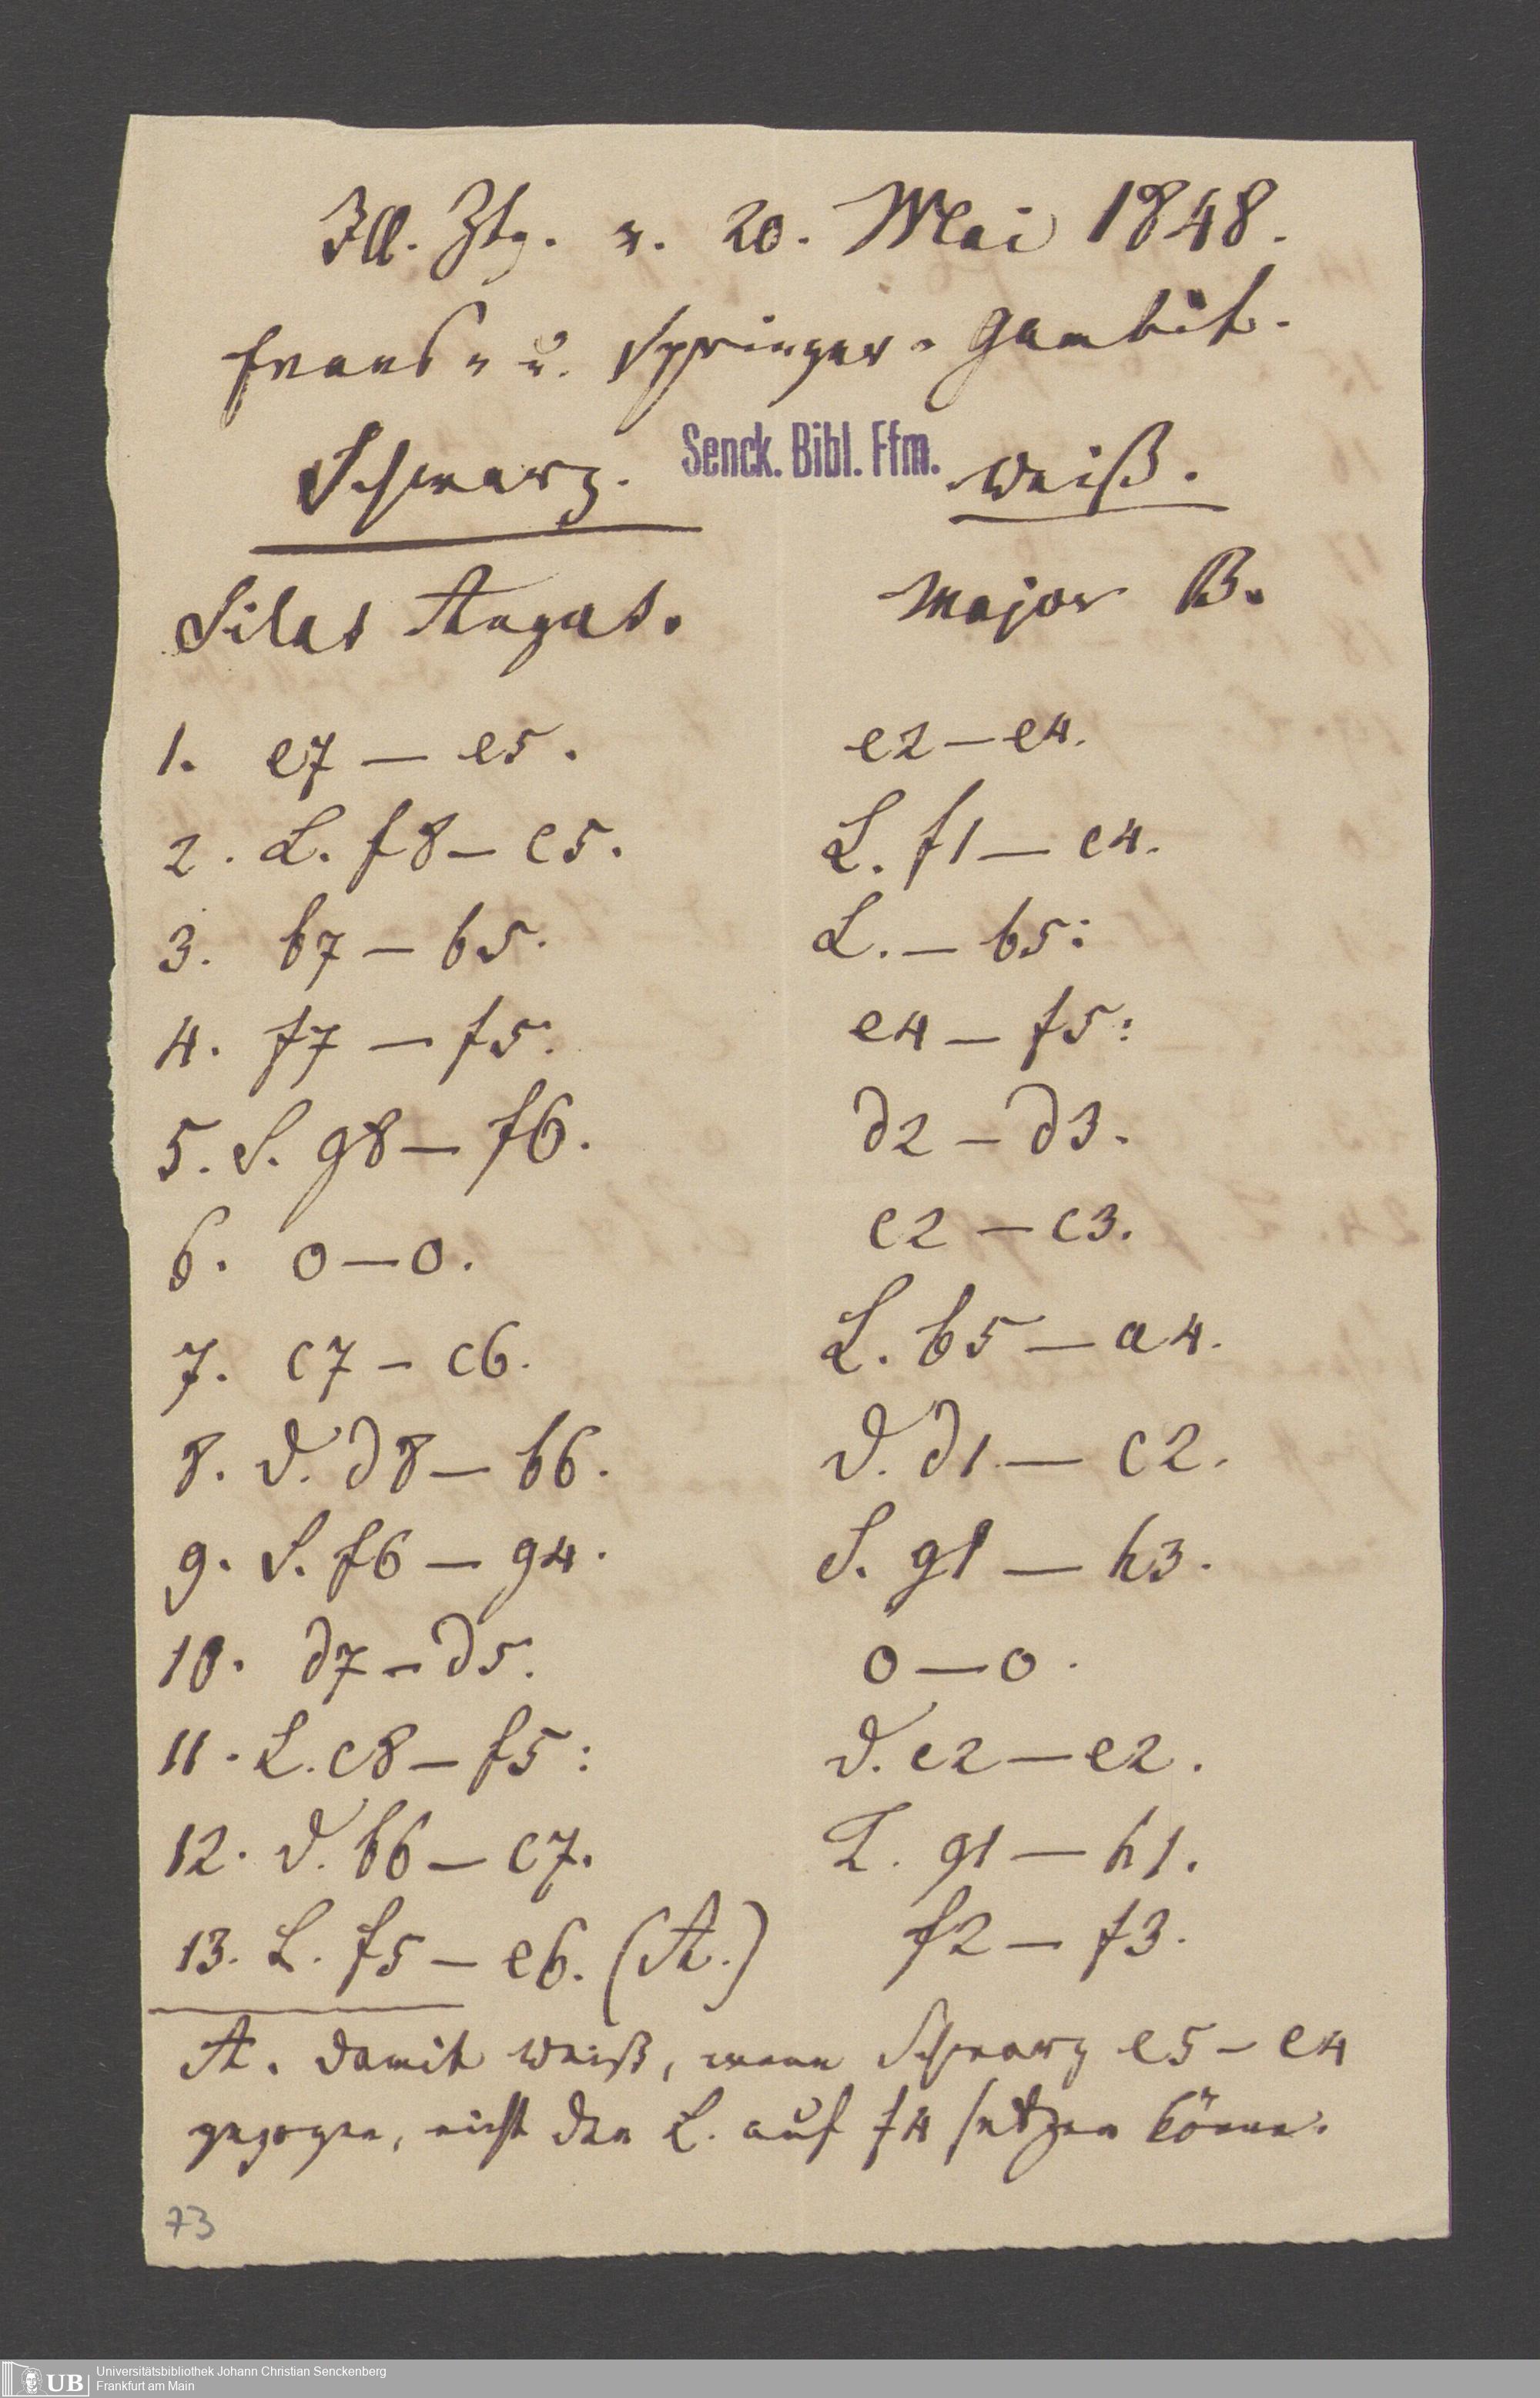 Ill. Ztg. v. 20. Mai 1848.
Evans- u. Springer-Gambit.
Senck. Bibl. Ffm.
Schwarz. Weiß.
Silas Angas. Major B.
1. e7 — e5. e2 — e4.
2. L. f8 — c5. L. f1 — c4.
3. b7 — b5. L. — b5:
4. f7 — f5. e4 — f5:
5. S. g8 — f6. d2 — d3.
6. 0 — 0. c2 — c3.
7. c7 — c6. L. b5 — a4.
8. D. d8 — b6. D. d1 — c2.
9. S. f6 — g4. S. g1 — h3.
10. d7 — d5. 0 — 0.
11. L. c8 — f5: D. c2 — e2.
12. D. b6 — c7. K. g1 — h1.
13. L. f5 — e6. (A.) f2 — f3.
A. Damit Weiß, wenn Schwarz e5 — e4
gezogen, nicht den L. auf f4 setzen könne.
73
UB
Universitätsbibliothek Johann Christian Senckenberg
Frankfurt am Main